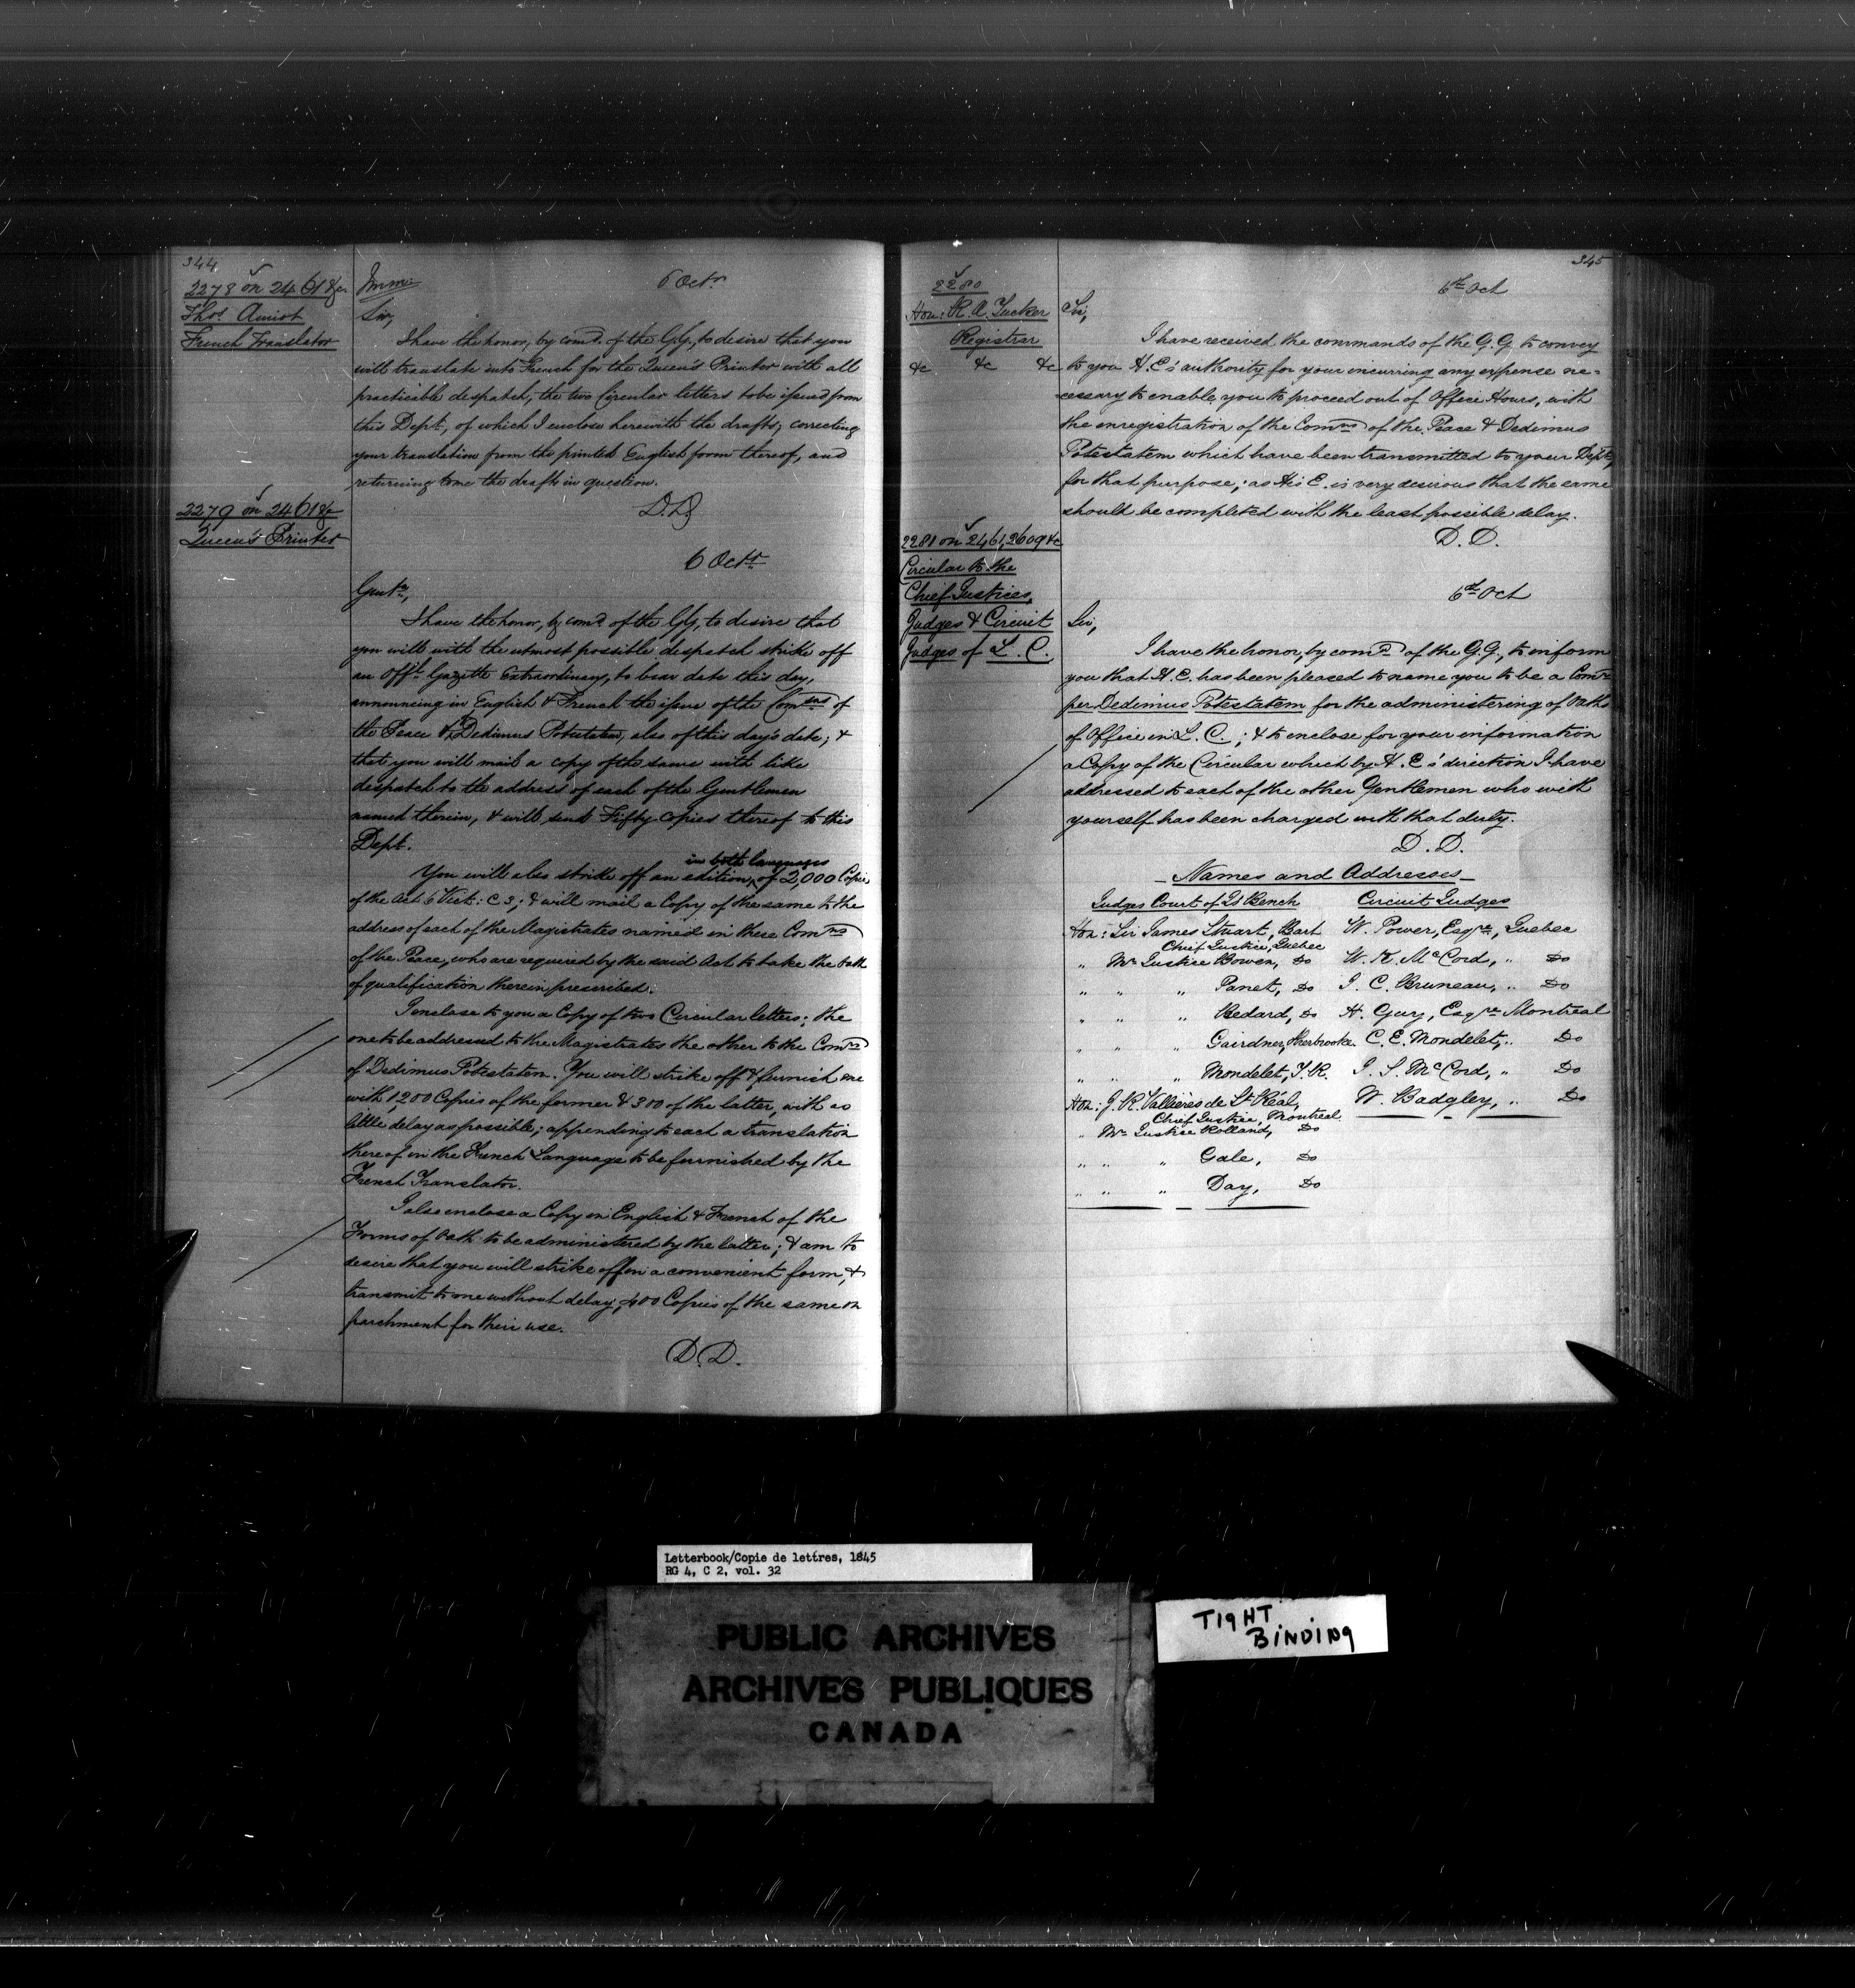 344
2278 on 2461 &c
Thos. Amiot
French Translator
Imm:
6 Octr.
Sir,
I have the honor, by comd. of the G.G., to desire that you
will translate into French for the Queen's Printer with all
practicable despatch, the two Circular letters to be issued from
this Dept., of which I enclose herewith the drafts; correcting
your translation from the printed English form thereof, and
returning to me the drafts in question.
D.D
2279 on 2461 &c
Queen's Printer
6 Octr.
Gentn.,
I have the honor, by comd. of the G.G., to desire that
you will with the utmost possible despatch strike off
an Offl. Gazette Extraordinary, to bear date this day,
announcing in English & French the issue of the Comns of
the Peace & Dedimus Potestatem, also of this day's date; &
that you will mail a copy of the same with like
despatch to the address of each of the Gentlemen
named therein, & will send Fifty copies thereof to this
Dept.
You will also strike off an edition, in both languages of 2,000 Copies
of the Act 6 Vict: C 3; & will mail a Copy of the same to the
address of each of the Magistrates named in these Comns
of the Peace, who are required by the said Act to take the oath
of qualification therein prescribed.
I enclose to you a Copy of two Circular letters; the
one to be addressed to the Magistrates the other to the Comrs
of Dedimus Potestatem. You will strike off & furnish me
with 1,200 Copies of the former & 300 of the latter, with as
little delay as possible; appending to each a translation
thereof in the French Language to be furnished by the
French Translator.
I also enclose a Copy in English & French of the
Forms of Oath to be administered by the latter; & am to
desire that you will strike off on a convenient form, &
transmit to me without delay, 400 Copies of the same on
parchment for their use.
D.D.
345
2280
Hon: R. A. Tucker
Registrar
&c &c &c
6th Oct
Sir,
I have received the commands of the G.G. to convey
to you H.E's authority for your incurring any expense ne-
cessary to enable you to proceed out of Office Hours, with
the enregistration of the Comns of the Peace & Dedimus
Potestatem which have been transmitted to your Dept.,
for that purpose; as His E. is very desirous that the same
should be completed with the least possible delay.
D. D.
2281 on 2461, 2609 &c
Circular to the
Chief Justices,
Judges & Circuit
Judges of L. C.
6th Oct
Sir,
I have the honor, by comd of the G.G., to inform
you that H.E. has been pleased to name you to be a Comr
per Dedimus Potestatem for the administering of Oaths
of Office in L. C.; & to enclose for your information
a Copy of the Circular which by H.E's direction I have
addressed to each of the other Gentlemen who with
yourself has been charged with that duty.
D. D.
Names and Addresses
Judges Court of Qs Bench Circuit Judges
Hon: Sir James Stuart, Bart W. Power, Esqre., Quebec
Chief Justice, Quebec
" Mr Justice Bowen, Do W. K. McCord, " Do
" " " Panet, Do J. C. Bruneau, " Do
" " " Bedard, Do H. Gugy, Esqre Montreal
" " " Gairdner, Sherbrooke C. E. Mondelet, " Do
" " " Mondelet, T.R. J. S. McCord, " Do
Hon: J. R. Vallières de St. Réal, W. Badgley, " Do
Chief Justice, Montreal
" Mr Justice Rolland, Do
" " " Gale, Do
" " " Day, Do
Letterbook/Copie de lettres, 1845
RG 4, C 2, vol. 32
PUBLIC ARCHIVES
ARCHIVES PUBLIQUES
CANADA
TIGHT
BINDING